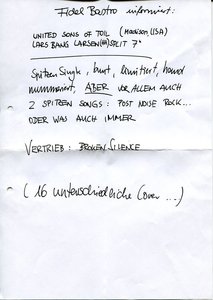 Fidel Bastro informiert:
UNITED SONS OF TOIL (Madison, USA)
LARS BANG LARSEN SPLIT 7"
Spitzen Single, bunt, limitiert, hand
nummeriert, ABER VOR ALLEM AUCH
2 SPITZEN SONGS: POST NOISE ROCK...
ODER WAS AUCH IMMER
VERTRIEB: BROKEN SILENCE
(16 unterschiedliche Cover ...)